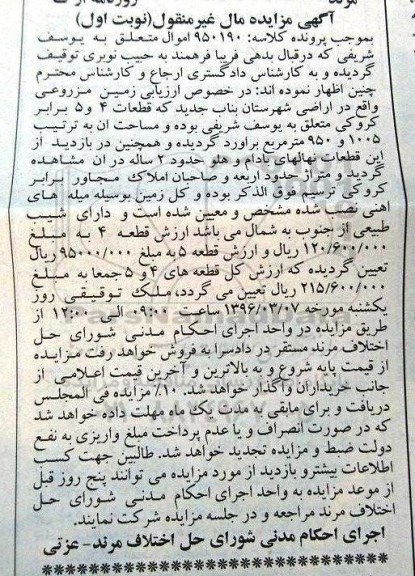 مرند
آگهی مزایده مال غیرمنقول(نوبت اول)
بموجب پرونده کلاسه: ۹۵۰۱۹۰ اموال متعلق به یوسف
شریفی که درقبال بدهی فریبا فرهمند به حبیب نوبری توقیف
گردیده و به کارشناس دادگستری ارجاع و کارشناس محترم
چنین اظهار نموده اند: در خصوص ارزیابی زمین مزروعی
واقع در اراضی شهرستان بناب جدید که قطعات ۴ و ۵ برابر
کروکی متعلق به یوسف شریفی بوده و مساحت ان به ترتیب
۱۰۰۵ و ۹۵۰ مترمربع براورد گردیده و همچنین در بازدید از
این قطعات نهالهای بادام و هلو حدود ۲ ساله در ان مشاهده
گردید و متراژ حدود اربعه و صاحبان املاک مجاور برابر
کروکی ترسیم فوق الذکر بوده و کل زمین بوسیله میله های
اهنی نصب شده مشخص و معین شده است و دارای شیب
طبیعی از جنوب به شمال می باشد ارزش قطعه ۴ به مبلغ
۱۲۰/۶۰۰/۰۰۰ ریال و ارزش قطعه ۵ به مبلغ ۹۵۰۰۰/۰۰۰ ریال
تعیین گردیده که ارزش کل قطعه های ۴ و ۵ جمعا به مبلغ
۲۱۵/۶۰۰/۰۰۰ ریال تعیین می گردد،ملک توقیفی روز
یکشنبه مورخه ۱۳۹۶/۰۳/۰۷ ساعت ۰۹:۰۰ الی ۱۲:۰۰ از
طریق مزایده در واحد اجرای احکام مدنی شورای حل
اختلاف مرند مستقر در دادسرا به فروش خواهد رفت مزایده
از قیمت پایه شروع و به بالاترین و آخرین قیمت اعلامی از
جانب خریداران واگذار خواهد شد. ۱۰٪ مزایده فی المجلس
دریافت و برای مابقی به مدت یک ماه مهلت داده خواهد شد
که در صورت انصراف و یا عدم پرداخت مبلغ واریزی به نفع
دولت ضبط و مزایده تجدید خواهد شد. طالبین جهت کسب
اطلاعات بیشترو بازدید از مورد مزایده می توانند پنج روز قبل
از موعد مزایده به واحد اجرای احکام مدنی شورای حل
اختلاف مرند مراجعه و در جلسه مزایده شرکت نمایند.
اجرای احکام مدنی شورای حل اختلاف مرند- عزتی